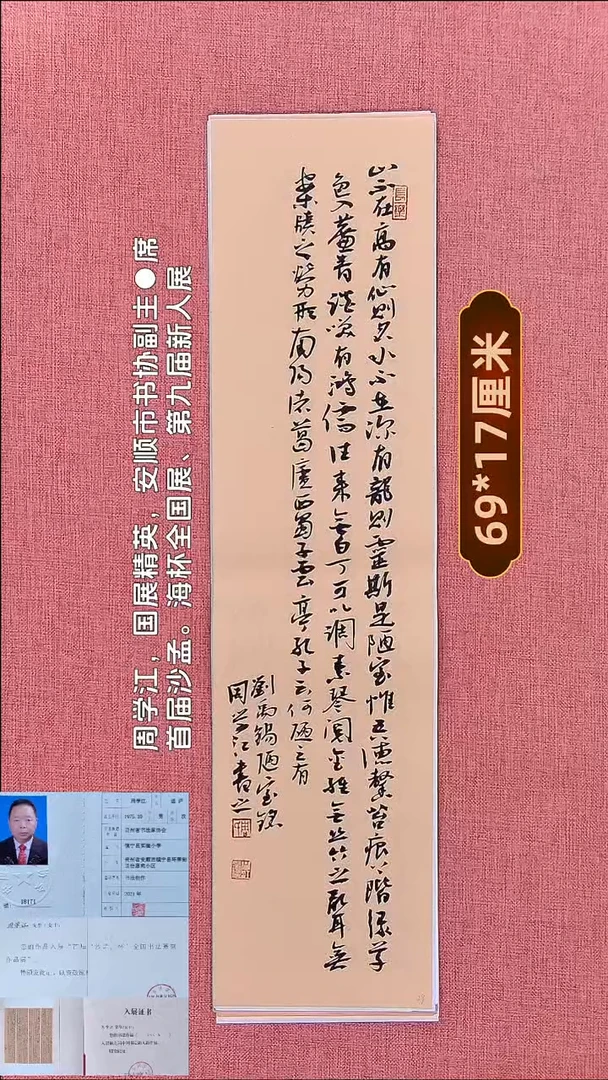 周学江，国展精英，安顺市书协副主●席
首届沙孟。海杯全国展、第九届新人展
69*17厘米
山不在高有仙則名水不在深有龍則靈斯是陋室惟吾德馨苔痕上階綠草
色入簾青談笑有鴻儒往來無白丁可以調素琴閱金經無丝竹之亂耳無
案牘之勞形南陽诸葛廬西蜀子雲亭孔子云何陋之有
劉禹錫陋室銘
周学江書之
周学江
18171
入展证书